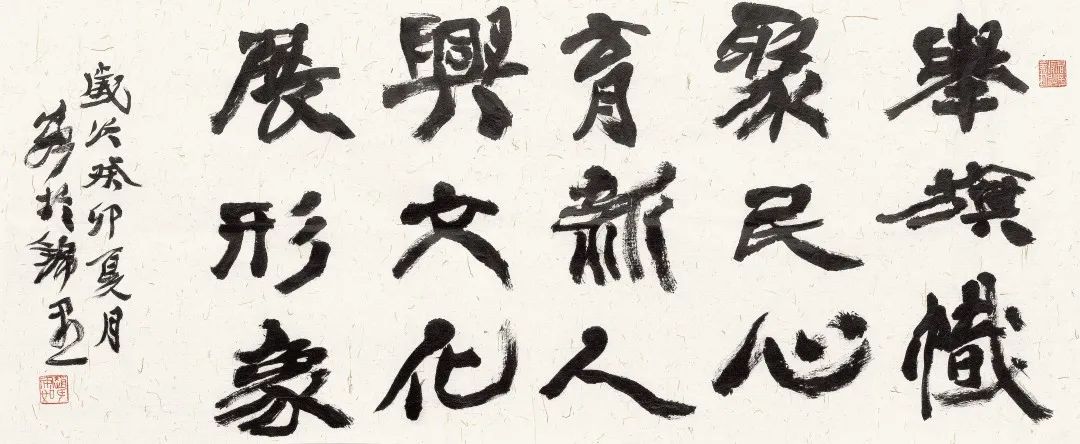 舉旗幟
聚民心
育新人
興文化
展形象
歲次癸卯夏月